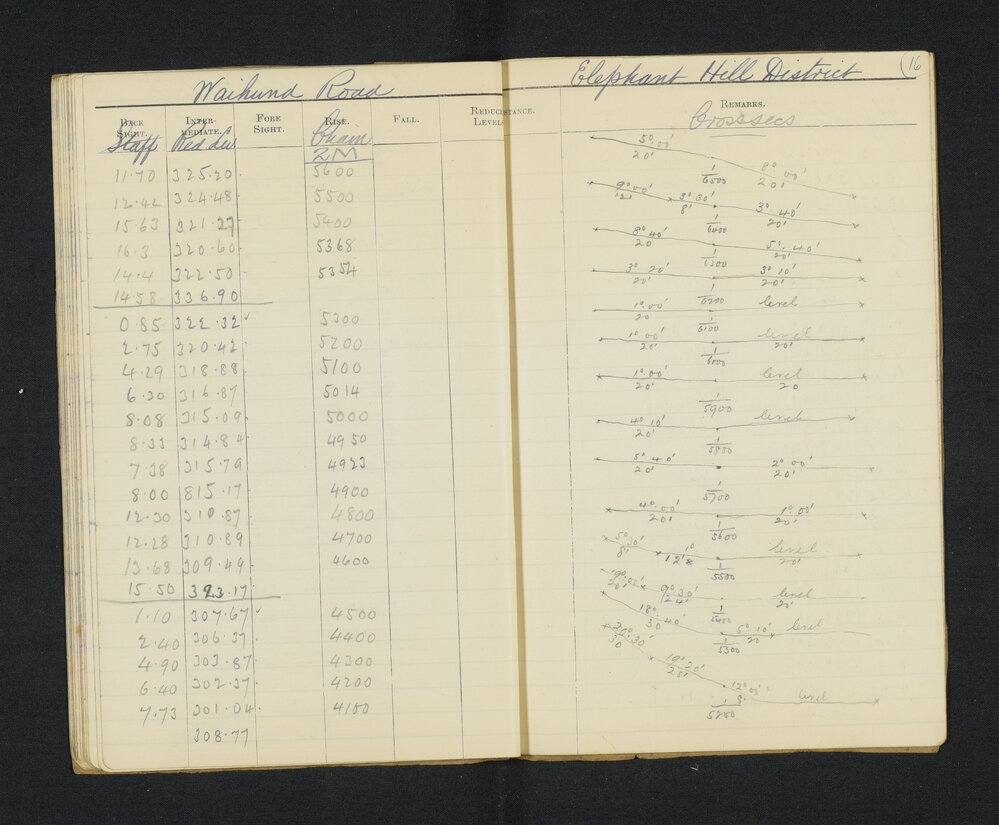 Waihuna Road
BACK SIGHT. INTER-MEDIATE. FORE SIGHT. RISE. FALL. REDUCED LEVEL
Staff Red Lev Chain
2M
11.70 325.20 5600
12.42 324.48 5500
15.63 321.27 5400
16.3 320.60 5368
14.4 322.50 5354
14.58 336.90
0.85 322.32 5300
2.75 320.42 5200
4.29 318.88 5100
6.30 316.87 5014
8.08 315.09 5000
8.33 314.84 4950
7.38 315.79 4923
8.00 315.17 4900
12.30 310.87 4800
12.28 310.89 4700
13.68 309.49 4600
15.50 323.17
1.10 307.67 4500
2.40 306.37 4400
4.90 303.87 4300
6.40 302.37 4200
7.73 301.04 4100
308.77
Elephant Hill District 16
DISTANCE. REMARKS.
Crosssecs
5° 00' 8° 00'
20' 20'
1/6500
9° 00' 3° 30' 3° 40'
12' 8' 20'
1/6400
8° 40' 5° 40'
20 20'
1/6300
3° 20' 3° 10'
20' 20'
1/6200
1° 00' level
20
1/6100
1° 00' level
20' 20'
1/6000
1° 00' level
20' 20
1/5900
4° 10' level
20'
1/5800
5° 40' 2° 00'
20' 20'
1/5700
4° 00' 1° 00'
20' 20'
1/5600
5° 30' 1° level
8' 12'8 20'
1/5500
19° 00' 9° 30' level
20' 12 4' 20'
1/5400
18° 40' 5° 10' level
30 20
1/5300
20° 30' 19° 20' 12° 00' level
30 25' 8'
1/5200